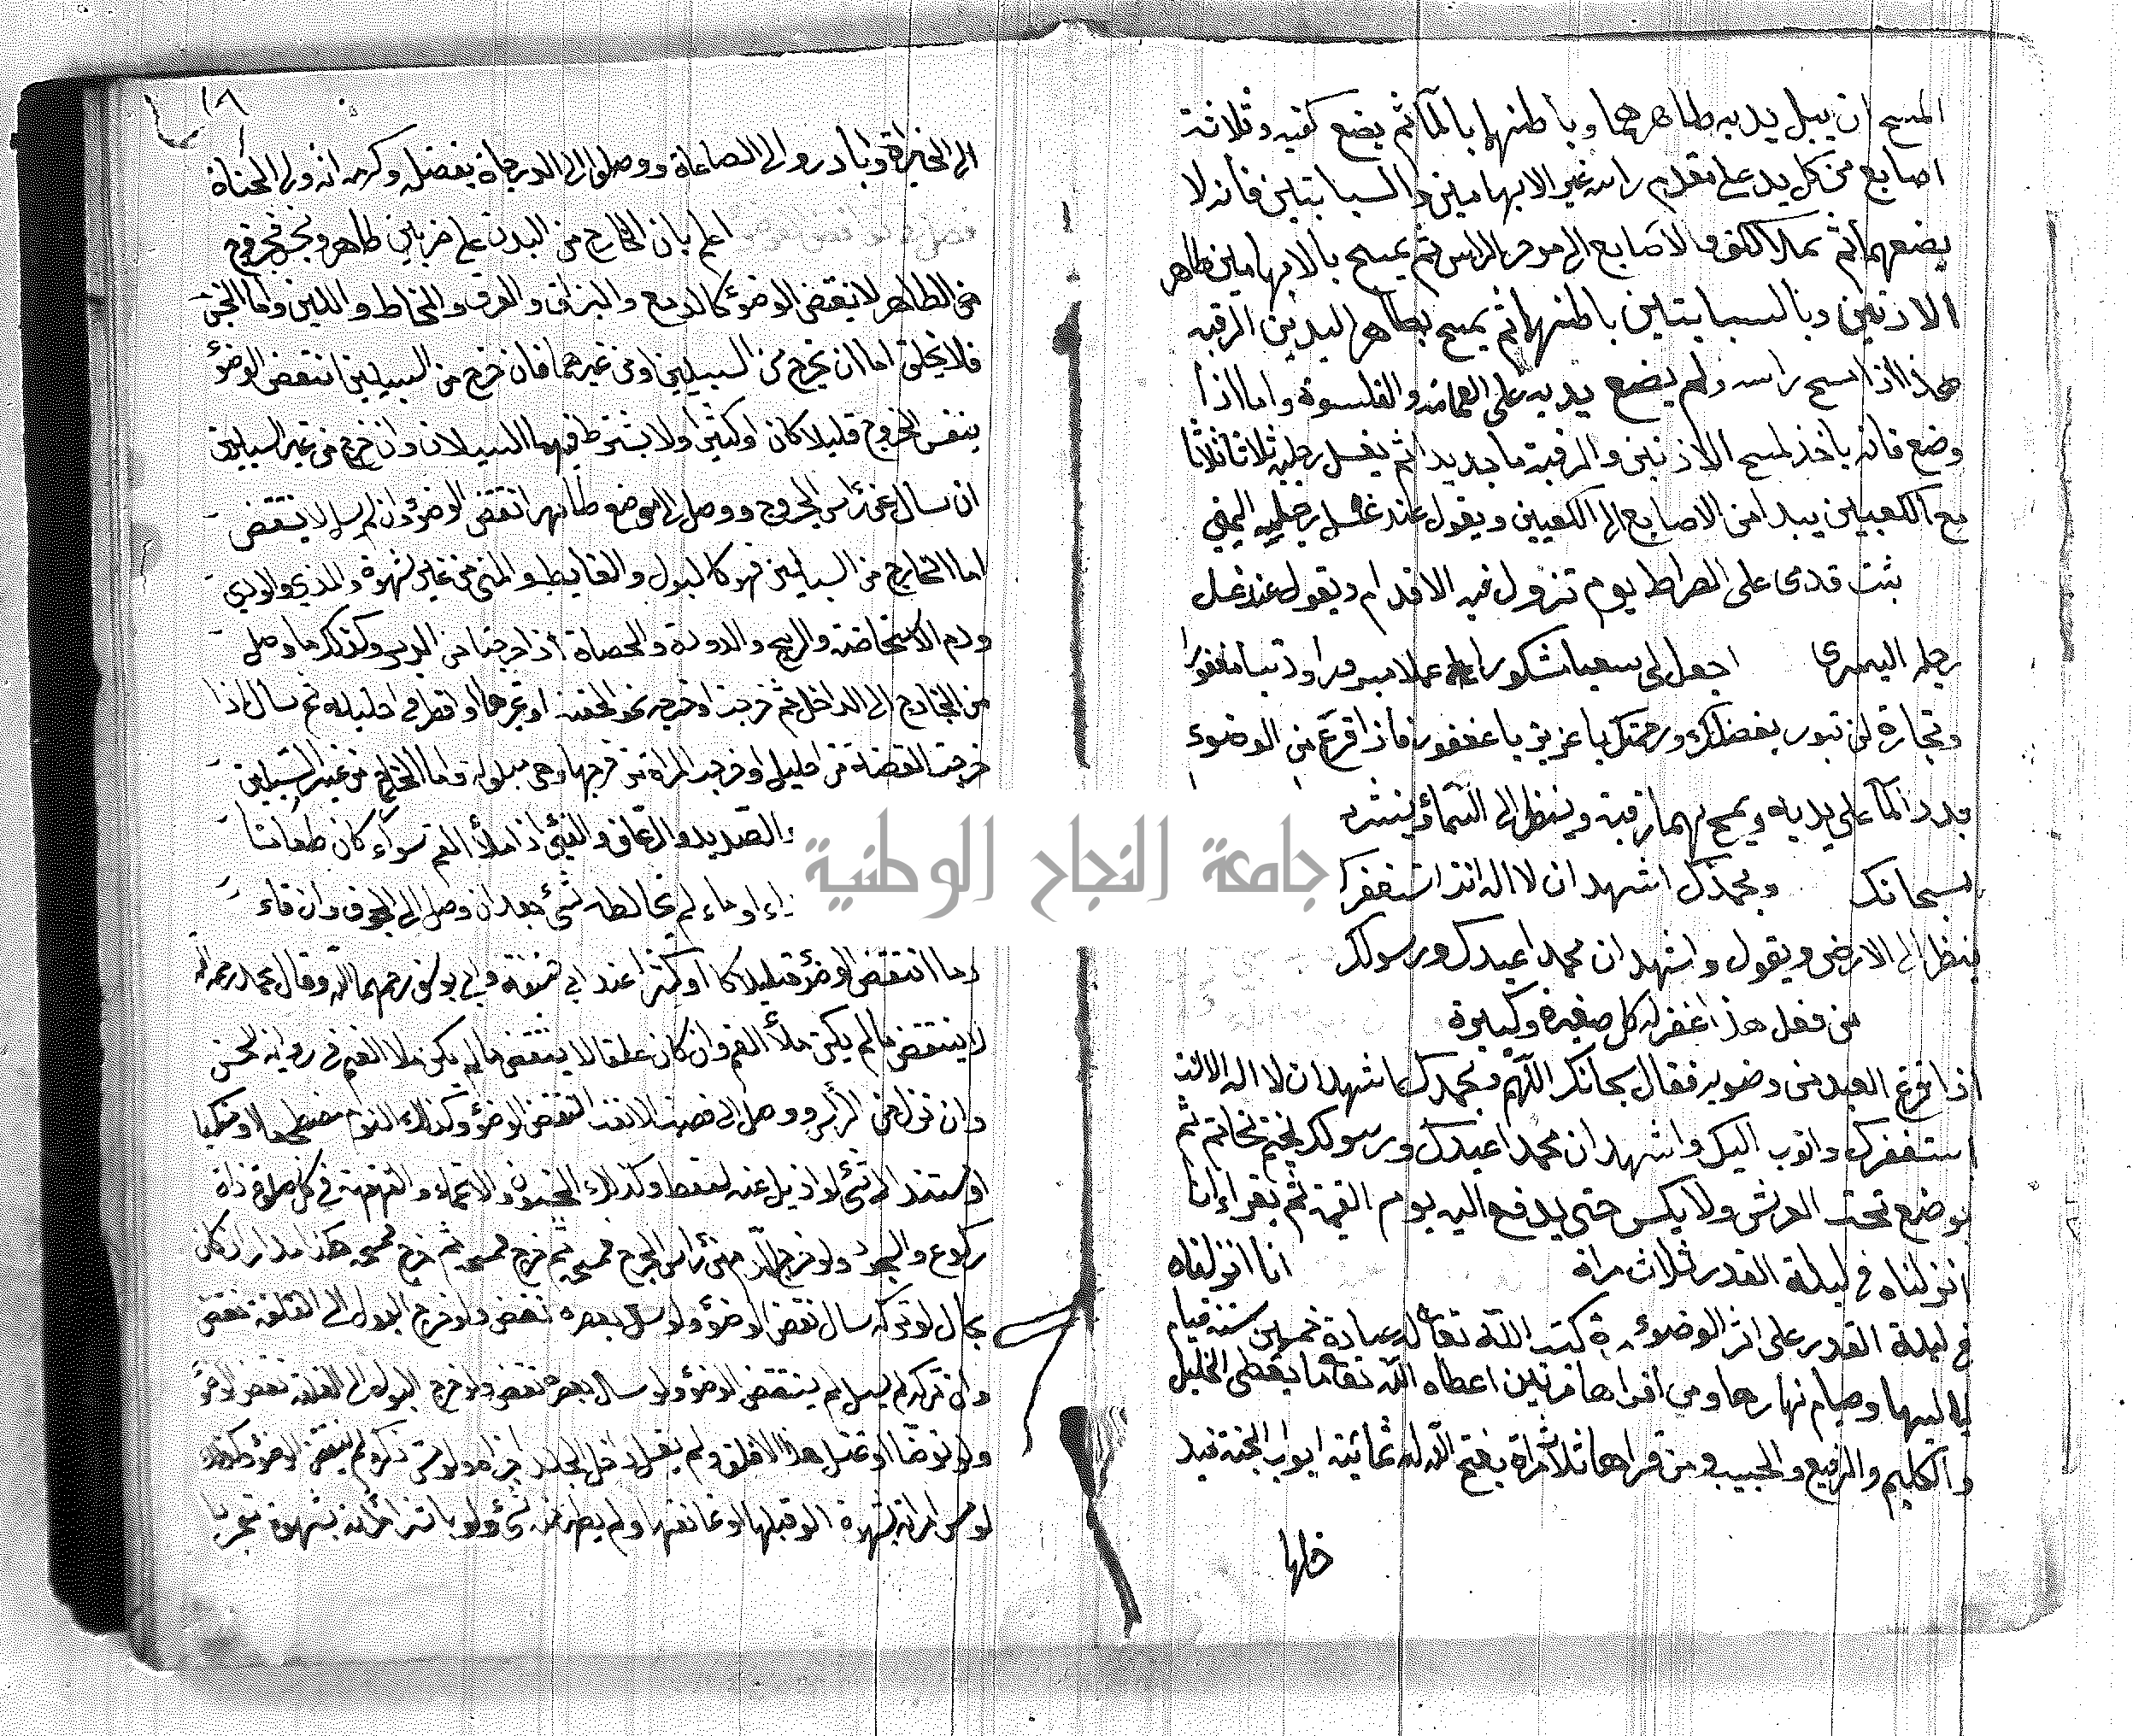 المسح ان يبل يديه ظاهرهما وباطنهما بالمآ ثم يضع كفيه وثلاثة
اصابع من كل يد على مقدم راسه غير الابهامين والسبابتين فانه لا
يضعهما ثم يمد الكف والاصابع الى موخر الراس ثم يمسح بالابهامين ظاهر
الاذنين وبالسبابتين باطنهما ثم يمسح بظاهر اليدين الرقبه
هذا اذا مسح راسه ولم يضع يديه على العمامة والقلنسوة واما اذا
وضع فانه ياخذ لمسح الاذنين والرقبة ما جديدا ثم يغسل رجليه ثلاثا ثلاثا
مع الكعبين يبدا من الاصابع الى الكعبين ويقول عند غسل رجليه اليمنى
ثبت قدمي على الصراط يوم تزول فيه الاقدام ويقول عند غسل
رجله اليسرى اجعل لي سعيا مشكورا عملا مبرورا وذنبا مغفورا
وتجارة لن تبور بفضلك ورحمتك يا عزيز يا غفور فاذا فرغ من الوضوء
المآ على يديه ويمسح بهما رقبته وينظر الى السمآ
سبحانك وبحمدك اشهد ان لا اله انت استغفرك
ينظر الى الارض ويقول واشهد ان محمدا عبدك ورسولك
من فعل هذا غفر له كل صغيرة وكبيرة
اذا فرغ العبد من وضويه فقال سبحانك اللهم وبحمدك اشهد ان لا اله الا انت
استغفرك واتوب اليك واشهد ان محمدا عبدك ورسولك يختم بخاتم ثم
يوضع تحت العرش ولا يكسر حتى يدفع اليه يوم القيمة ثم يقراء انا
انزلناه في ليلة القدر ثلاث مراة انا انزلناه
في ليلة القدر على اثر الوضوء كتب الله تعا له عبادة خمسين سنة قيام
لياليها وصيام نهارها ومن اقراها مرتين اعطاه الله تعا ما يعطى الخليل
والكليم والرفيع والحبيب ومن قراها ثلاث مراة يفتح الله له ثمانية ابواب الجنة فيد
خلها
الى الخيراة وبادروا الى الطاعاة ووصلوا الى الدرجاة بفضله وكرمه انه ولي الحناة
اعلم بان الخارج من البدن على ضربين طاهر ونجس فخروج
من الطاهر لا ينقض الوضؤ كالدمع والبزاق والعرق والمخاط واللبن واما النجس
فلا يخلو اما ان يخرج من السبيلين او من غيرهما فان خرج من السبيلين انتقض الوضؤ
بنفس الخروج قليلا كان او كثيرا ولا يشترط فيهما السيلان وان خرج من غير السبيلين
ان سال عن راس الجروح ووصل الى موضع طاهر انتقض الوضؤ وان لم يسل لا ينتقض
اما الخارج من السبيلين فهو كالبول والغايط والمني من غير شهوة والمذي والودي
ودم الاستحاضة والريح والدودة والحصاة اذا خرجتا من الدبر وكذلك ما وصل
من الخارج الى الداخل ثم خرجت او خرجه نحو الحقنة او غيرها او اقطر في احليله ثم سال اذا
خرجت القطنة من احليل او خرجت المراة من فرجها وهي مبلولة واما الخارج من غير السبيلين
والصديد والرعاف والقيئ اذا ملأ الفم سواء كان طعاما
او ماء لم يخالطه شئ بعد ان وصل الى الجوف وان قاء
دما انتقض الوضؤ قليلا كا او كثيرا عند ابي حنيفة وابي يوسف رحمهما الله وقال محمد رحمه الله
لا ينتقض ما لم يكن ملأ الفم وان كان علقا لا ينتقض ما لم يكن ملا الفم في رواية الحسن
وان نزل من الراس ووصل الى قصبة الانف انتقض الوضؤ وكذلك النوم مضطجعا او متكيا
او مستندا الى شئ لو ازيل عنه لسقط وكذلك الجنون والاغماء والقهقهة في كل صلوة ذاة
ركوع والسجود ولو خرج الدم من راس الجرح فمسحه ثم خرج فمسحه ثم خرج فمسحه هكذا مدارا ان كان
بحال لو تركه سال نقض الوضؤ ولو سال بعصره نقض ولو خرج البول الى القلفة نقض
وان تركه لم يسل لم ينتقض الوضؤ ولو سال بعصره نقض ولو خرج البول الى القلفة نقض الوضؤ
ولو توضا او غسل هذا الاقلف ولم يغسل داخل الجلد اجزاه ولو مس ذكره لم ينتقض الوضؤ وكذلك
لو مس امراته بشهوة او قبلها او عانقها ولم يظهر منه شئ ولو باشر امراته بشهوة
جامعة النجاح الوطنية